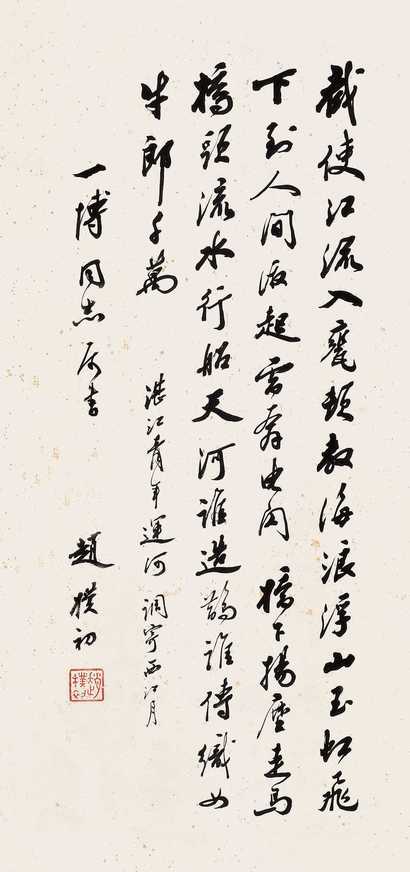 截使江流入甕頓教海浪浮山玉虹飛
下到人間激起雷奔電閃 橋下揚塵走馬
橋頭流水行船天河誰造鵲誰傳織女
牛郎千萬 湛江青年運河 調寄西江月
一博同志屬書 趙樸初
趙樸初